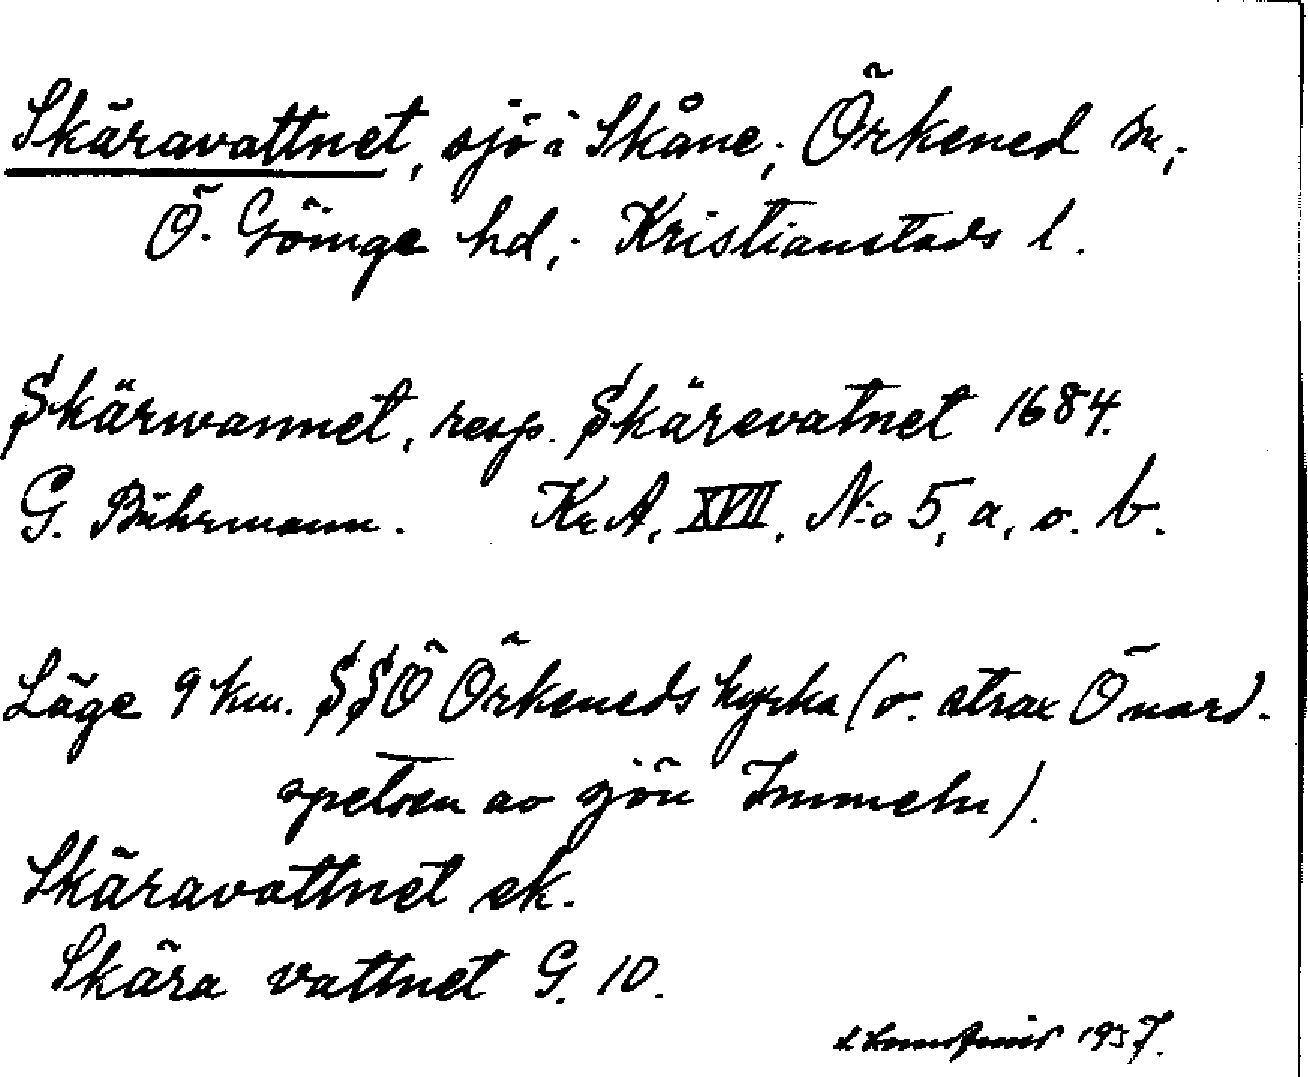 Skäravattnet, sjö i Skåne; Örkened sn,;
Ö. Göinge hd,; Kristianstads l.
Skärwannet, resp. Skärevatnet 1684.
G. Bührmann. KrA, XVII, N:o 5, a, o. b.
Läge 9 km. SSÖ Örkeneds kyrka (o. strax Ö nord.
spetsen av sjön Immeln).
Skäravattnet ek.
Skära vattnet G. 10.
1957.